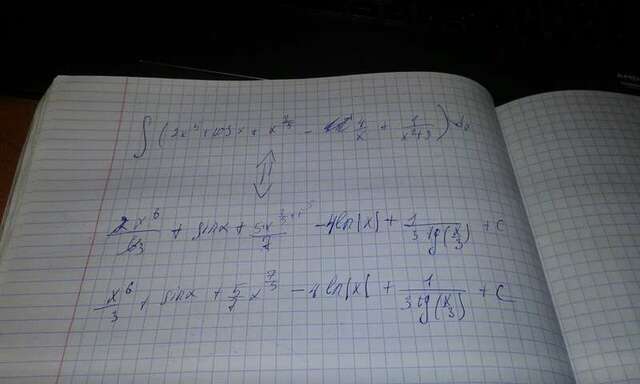 ∫ (2x⁵ + cos x + x^(2/5) − 4/x + 1/(x²+9)) dx
⇕
2x⁶/6 3 + sinx + 5x^(2/5+1)/7 − 4ln|x| + 1/(3 tg(x/3)) + C
x⁶/3 + sinx + 5/7 x^(7/5) − 4ln|x| + 1/(3 tg(x/3)) + C